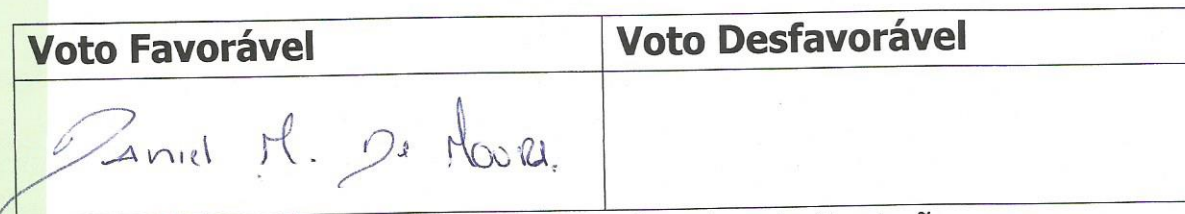 Voto Favorável
Voto Desfavorável
Daniel M. De Moura.